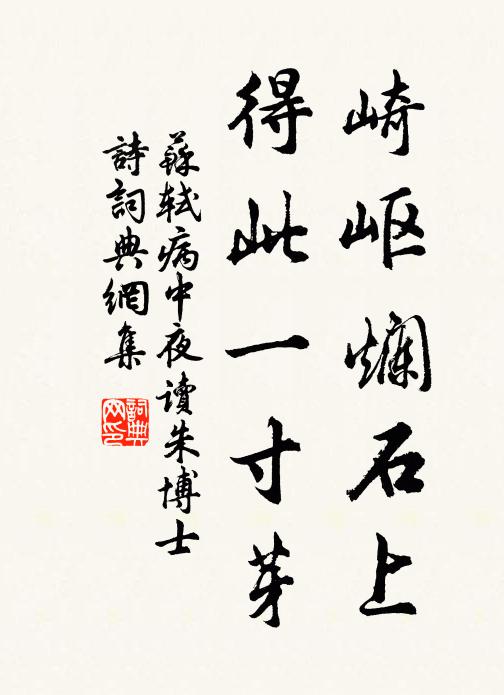 崎岖爛石上
得此一寸芽
蘇軾病中夜读朱博士
詩詞典網集
詞典网印